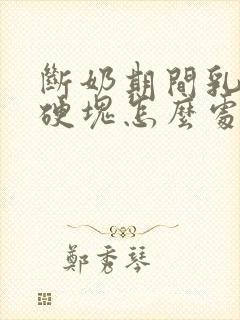 斷奶期間乳
硬塊怎麼處
鄭秀琴